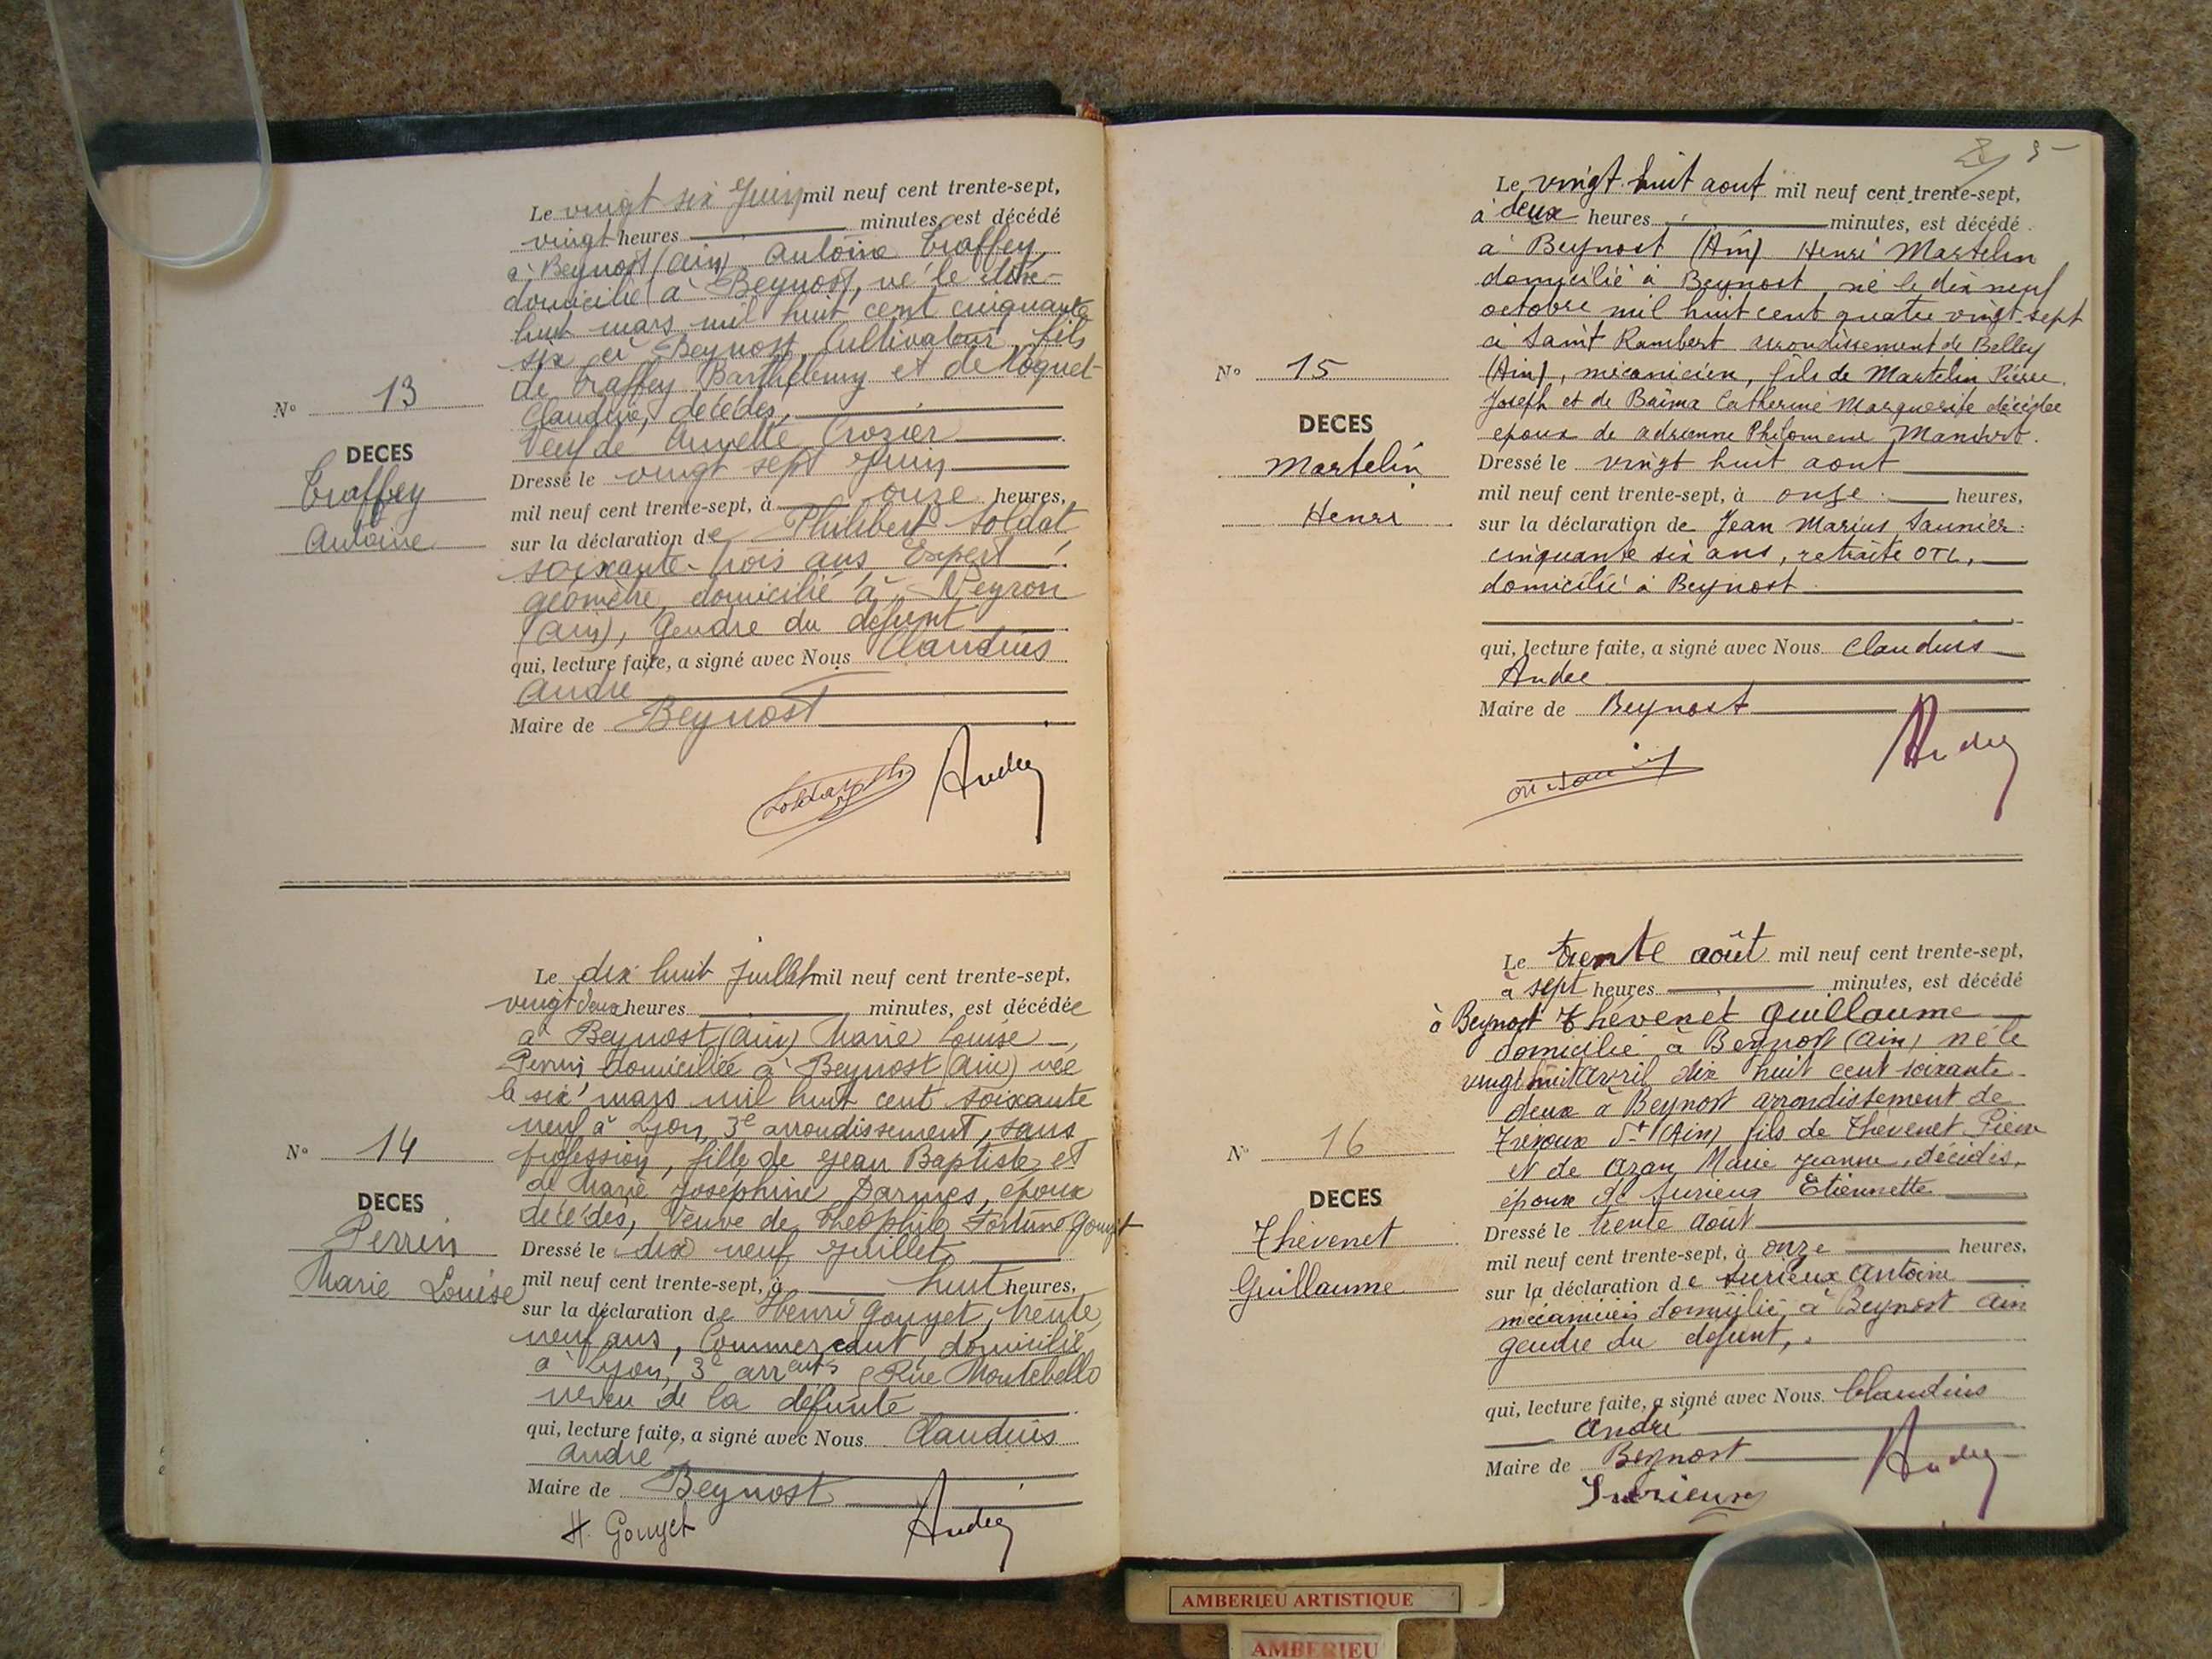 Le vingt six Juin mil neuf cent trente-sept,
vingt heures minutes, est décédé
à Beynost (Ain) Antoine Traffey
domicilié à Beynost, né le dix-
huit mars mil huit cent cinquante
six à Beynost, Cultivateur, fils
de Traffey Barthélemy et de Noquet
Claudine, décédés,
Veuf de Annette Crozier
Nº 13
DECES
Traffey
Antoine
Dressé le vingt sept Juin
mil neuf cent trente-sept, à onze heures,
sur la déclaration de Philibert Soldat
soixante-trois ans, Expert
géomètre, domicilié à Neyron
(Ain), Gendre du défunt
qui, lecture faite, a signé avec Nous Claudius
André
Maire de Beynost
Le dix huit Juillet mil neuf cent trente-sept,
vingt deux heures minutes, est décédée
à Beynost (Ain) Marie Louise
Perrin domiciliée à Beynost (Ain) née
le six mars mil huit cent soixante
neuf à Lyon, 3e arrondissement, sans
profession, fille de Jean Baptiste et
de Marie Joséphine Darmes, époux
décédés, Veuve de Théophile Fortuné Gouyet
Nº 14
DECES
Perrin
Marie Louise
Dressé le dix neuf Juillet
mil neuf cent trente-sept, à huit heures,
sur la déclaration de Henri Gouyet, trente
neuf ans, Commerçant, domicilié
à Lyon, 3e Rue Montebello
neveu de la défunte
qui, lecture faite, a signé avec Nous Claudius
André
Maire de Beynost
H. Gouyet
Le vingt huit aout mil neuf cent trente-sept,
à deux heures minutes, est décédé
à Beynost (Ain) Henri Martelin
domicilié à Beynost, né le dix neuf
octobre mil huit cent quatre vingt sept
à Saint Rambert arrondissement de Belley
(Ain), mécanicien, fils de Martelin Pierre
Joseph et de Baima Catherine Marguerite décédée
époux de Adrienne Philomene
Nº 15
DECES
Martelin
Henri
Dressé le vingt huit aout
mil neuf cent trente-sept, à onze heures,
sur la déclaration de Jean Marius Saunier
cinquante six ans, retraité OTL,
domicilié à Beynost
qui, lecture faite, a signé avec Nous Claudius
Andre
Maire de Beynost
Le trente août mil neuf cent trente-sept,
à sept heures minutes, est décédé
à Beynost Thévenet Guillaume
domicilié à Beynost (Ain) né le
vingt huit avril dix huit cent soixante
deux à Beynost arrondissement de
Trévoux (Ain) fils de Thévenet Pierre
et de Azan Marie Jeanne, décédés,
époux de Surieux Etiennette
Nº 16
DECES
Thévenet
Guillaume
Dressé le trente Août
mil neuf cent trente-sept, à onze heures,
sur la déclaration de Surieux Antoine
mécanicien domicilié à Beynost Ain
gendre du défunt,
qui, lecture faite, a signé avec Nous Claudius
André
Maire de Beynost
Surieux
AMBERIEU ARTISTIQUE
AMBERIEU